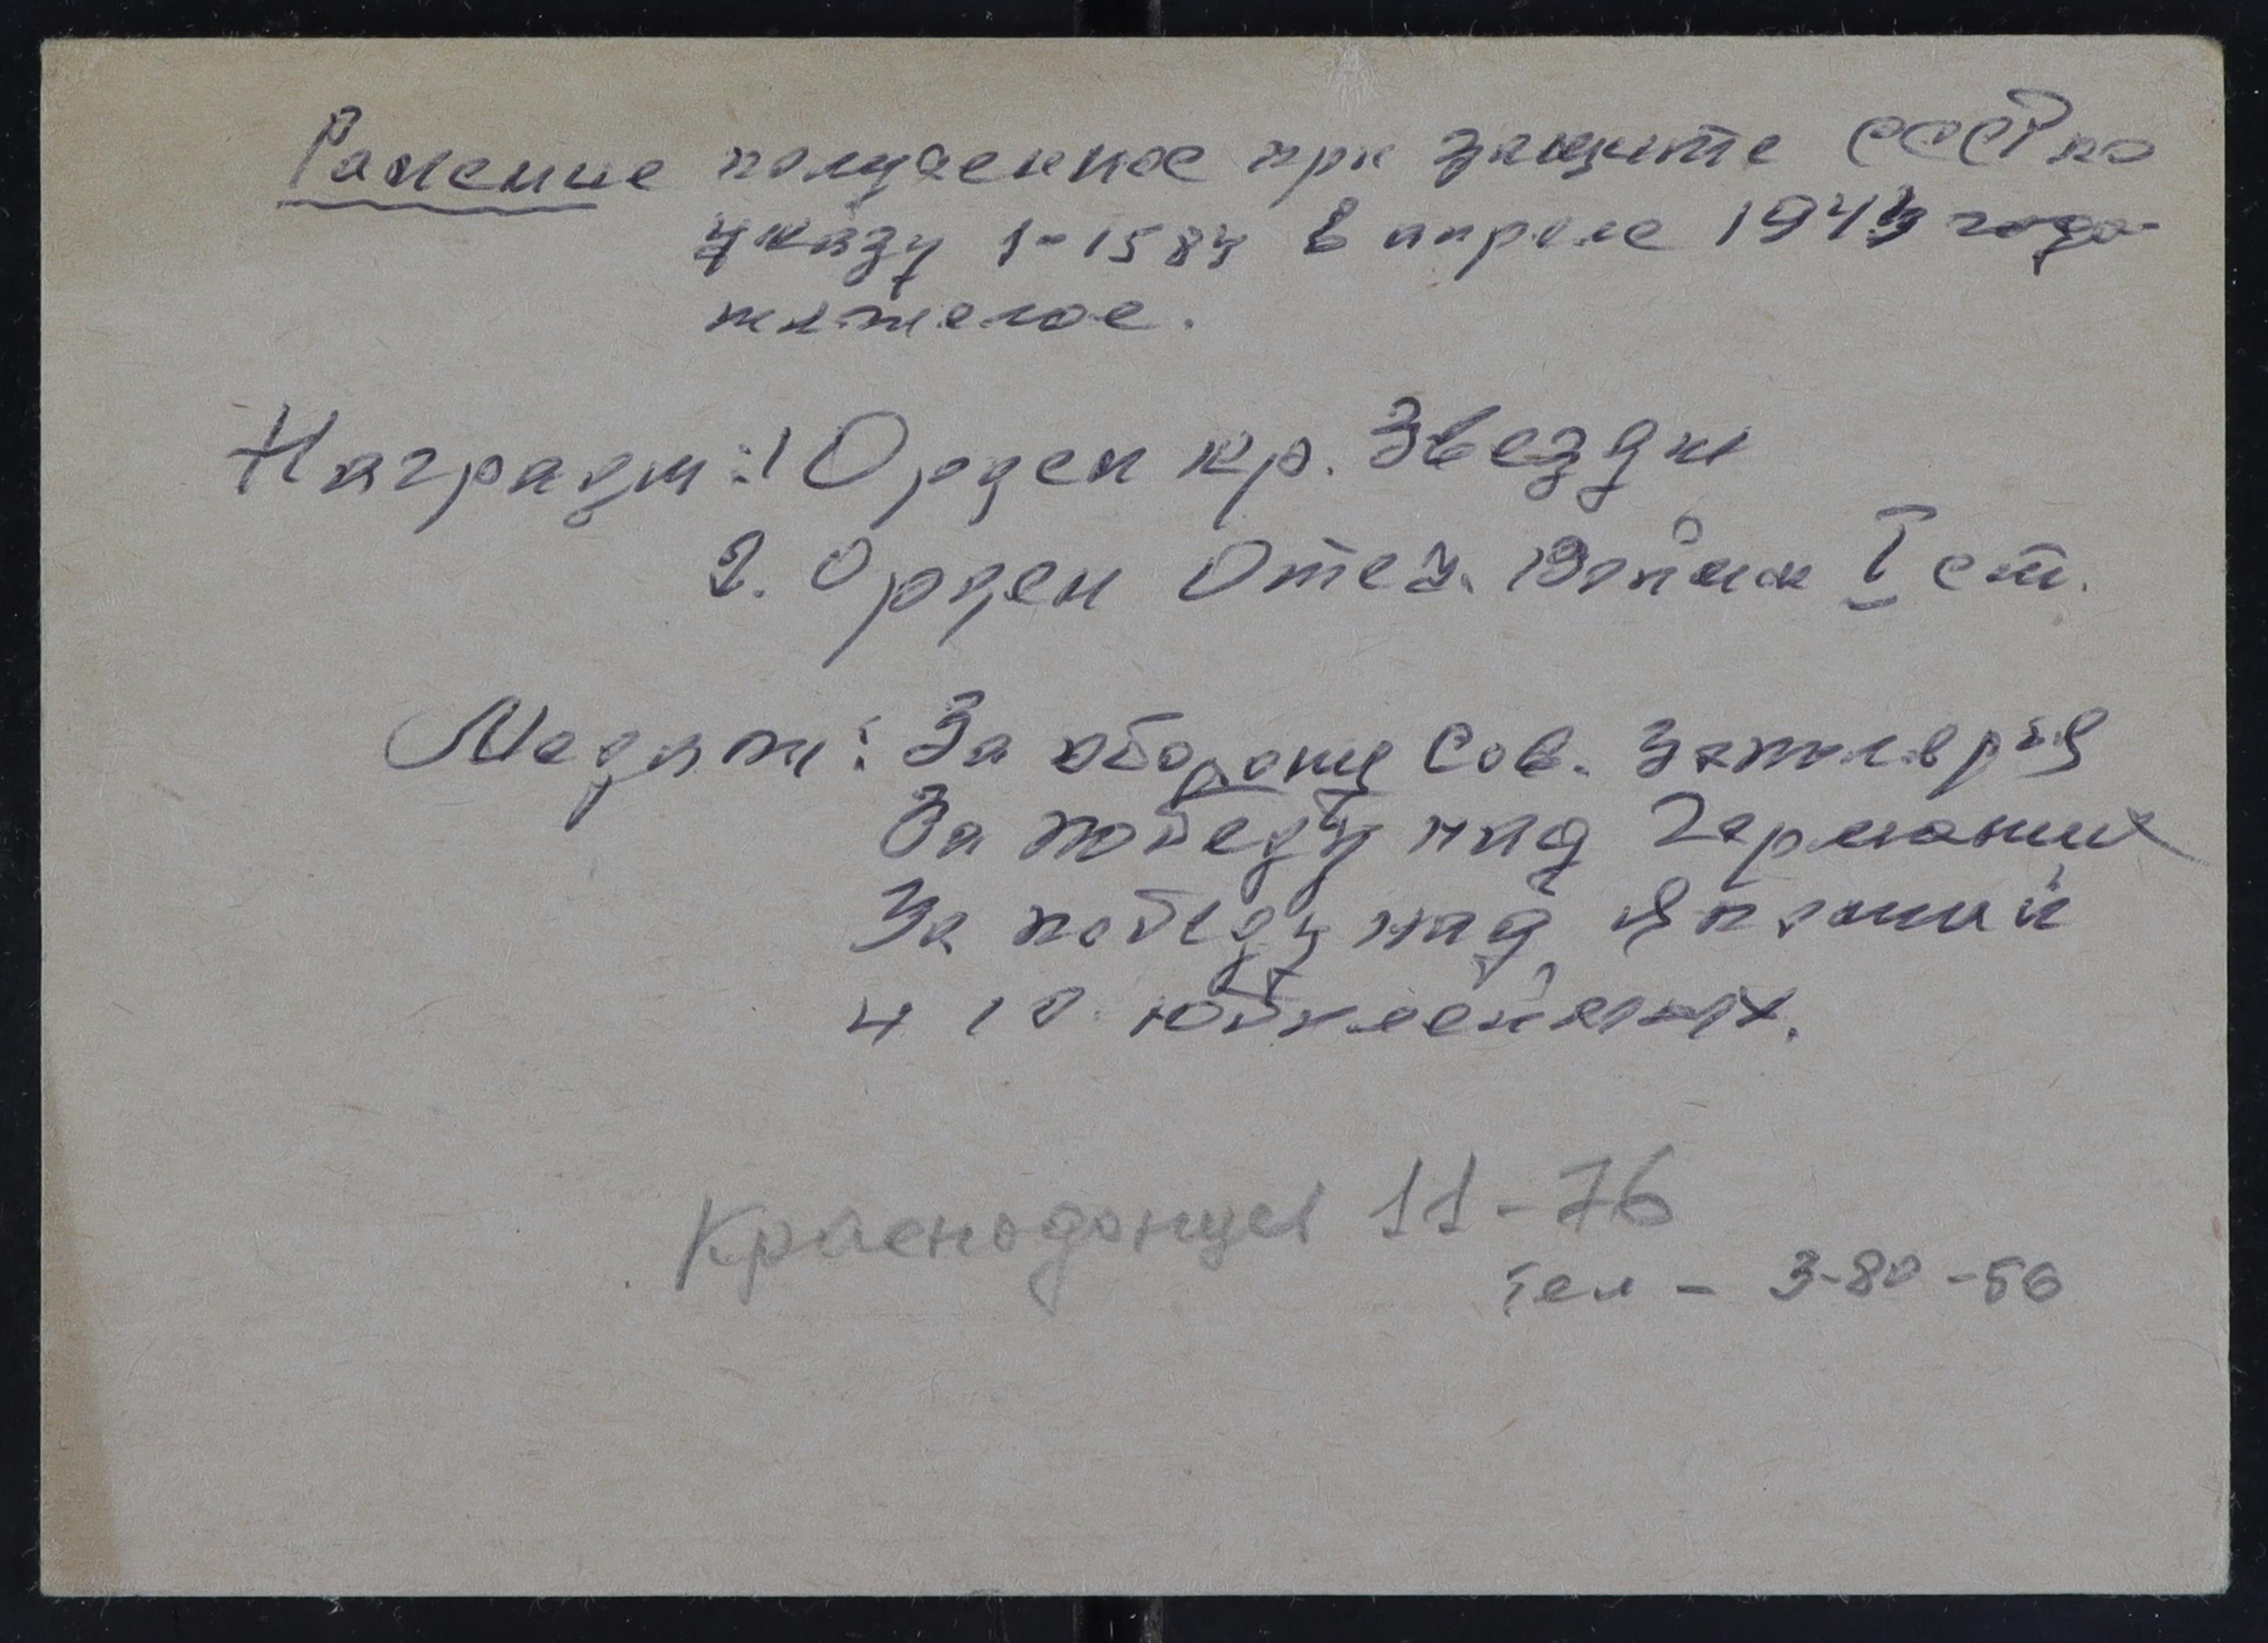 Ранение полученное при защите СССР по
указу 1-1584 в апреле 194 года
тяжелое.
Награды: 1 Орден кр. Звезды
2. Орден Отеч. Войны I ст.
Медали: За оборону Сов. Заполярья
За победу над Германии
За победу над Японий
и 10 юбилейных.
Краснодонцев 11-76
тел - 3-80-56